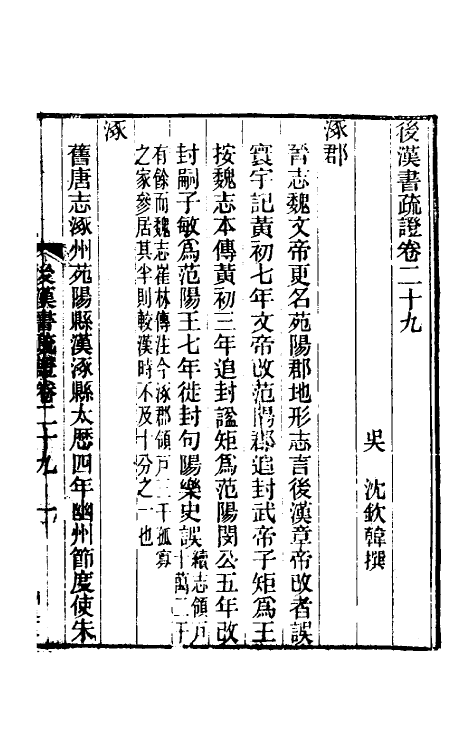 後漢書疏證卷二十九
吳 沈欽韓撰
涿郡
晉志魏文帝更名范陽郡地形志言後漢章帝改者誤
寰宇記黃初七年文帝改范陽郡追封武帝子矩為王
按魏志本傳黃初三年追封謚矩為范陽閔公五年改
封嗣子敏為范陽王七年徙封句陽樂史誤
續志領戶
十萬二千
有餘而魏志崔林傳注今涿郡領戶三千孤寡
之家參居其半則較漢時不及十分之一也
涿
舊唐志涿州范陽縣漢涿縣大厯四年幽州節度使朱
後漢書疏證卷二十九